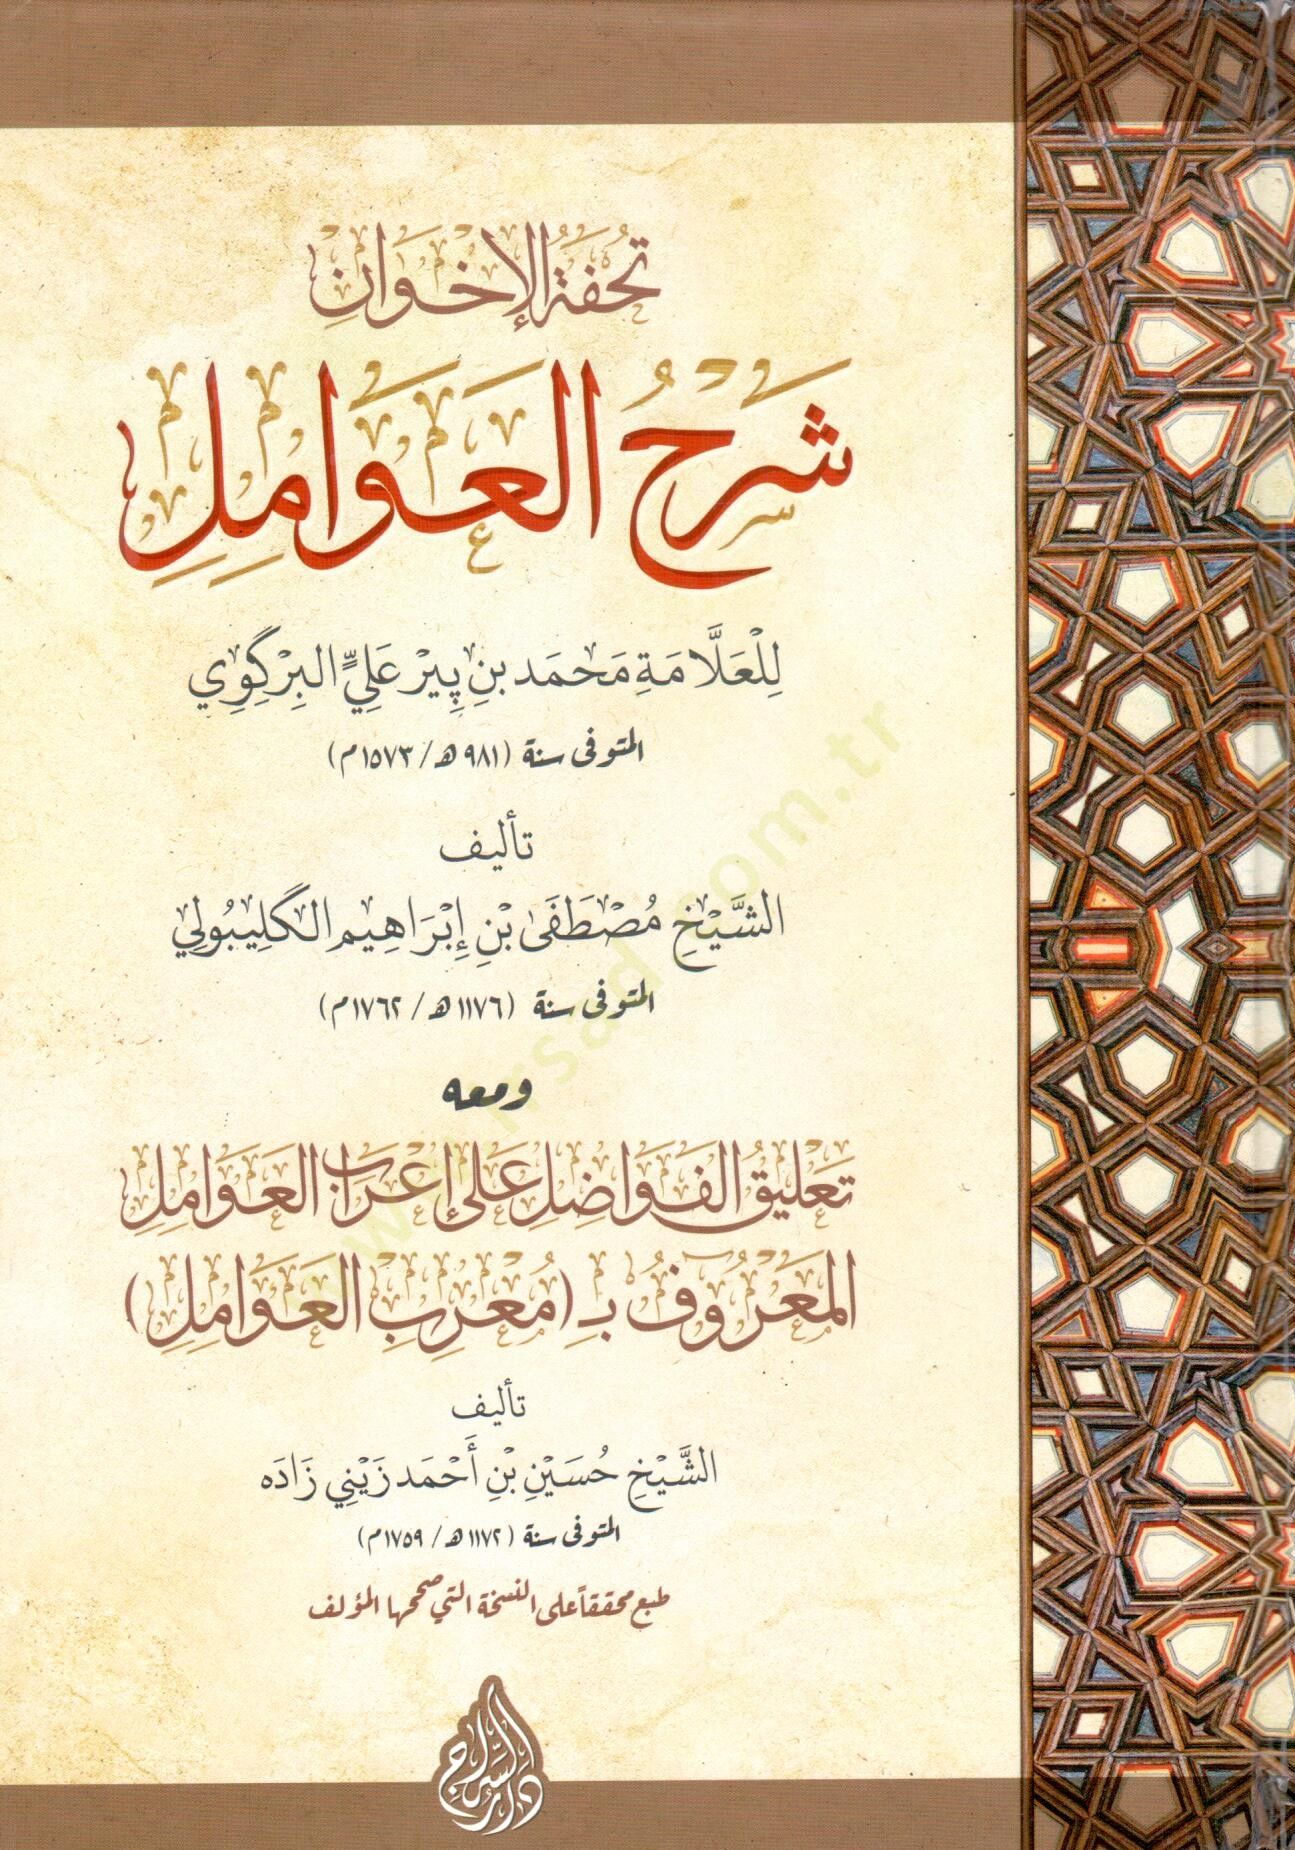 تُحْفَةُ الإِخْوَانِ
شَرْحُ العَوَامِلِ
لِلْعَلَّامَةِ مَحمَد بنِ پِيْر عَلِيٍّ البِرْگِوِي
المتوفى سنة (٩٨١هـ/ ١٥٧٣م)
تأليف
الشَّيْخِ مُصْطَفَى بْنِ إِبْرَاهِيم الگلِيبُولِي
المتوفى سنة (١١٧٦هـ/ ١٧٦٢م)
ومعه
تَعْلِيقُ الفَوَاضِلِ عَلَى إِعْرَابِ العَوَامِلِ
المَعْرُوفُ بـ (مُعْرِبِ العَوَامِلِ)
تأليف
الشَّيْخِ حُسَيْنِ بْنِ أَحْمَد زَيْنِي زَادَه
المتوفى سنة (١١٧٢هـ/ ١٧٥٩م)
طبع محققاً على النسخة التي صححها المؤلف
دار السراج